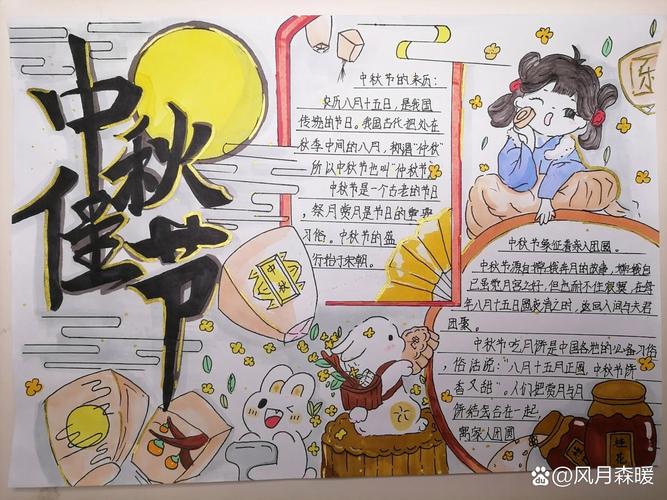 中秋佳节
中秋
中秋节的来历:
农历八月十五日,是我国
传统的节日。我国古代把处在
秋季中间的八月,称谓“仲秋”
所以中秋节也叫“仲秋节”
中秋节是一个古老的节日
,祭月赏月是节日的重要
习俗。中秋节的盛
行始于宋朝。
乐
中秋节象征着亲人团圆。
中秋节源自嫦娥奔月的故事,嫦娥自
已虽觉月宫之好,但也耐不住寂寞,在每
年八月十五日圆夜清之时,返回人间与夫君
团聚。
中秋节吃月饼是中国各地的必备习俗
,俗话说:“八月十五月正圆,中秋节饼
香又甜”。人们把赏月与月
饼结合在一起
寓意人团圆
桂花
Bai百度 @风月森暖